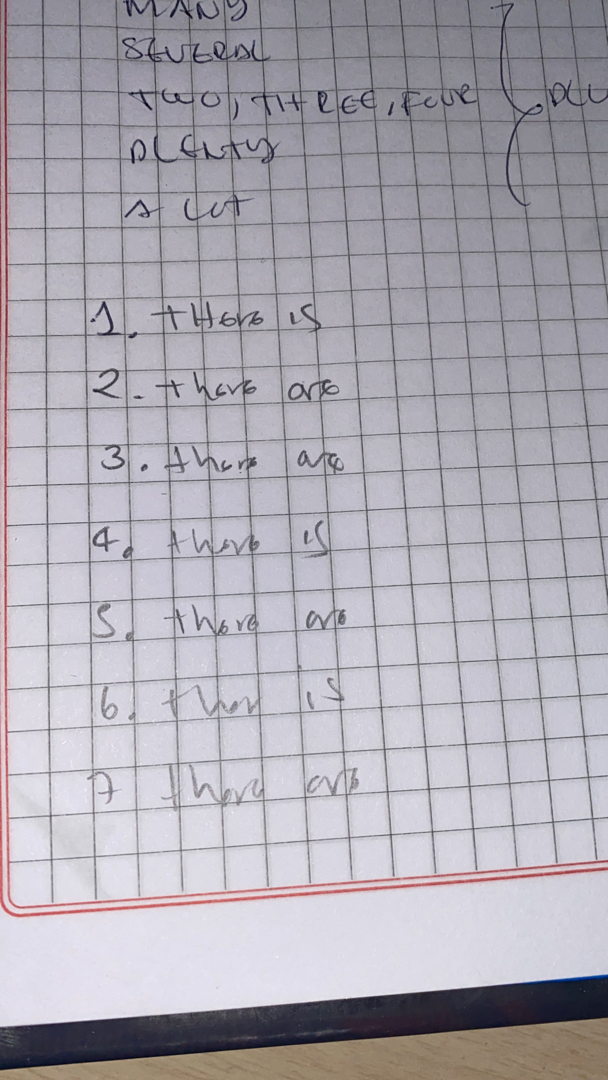 MANY
SEVERAL
TWO, THREE, FOUR
PLENTY
A LOT
1. there is
2. there are
3. there are
4. there is
5. there are
6. ther is
7 there are